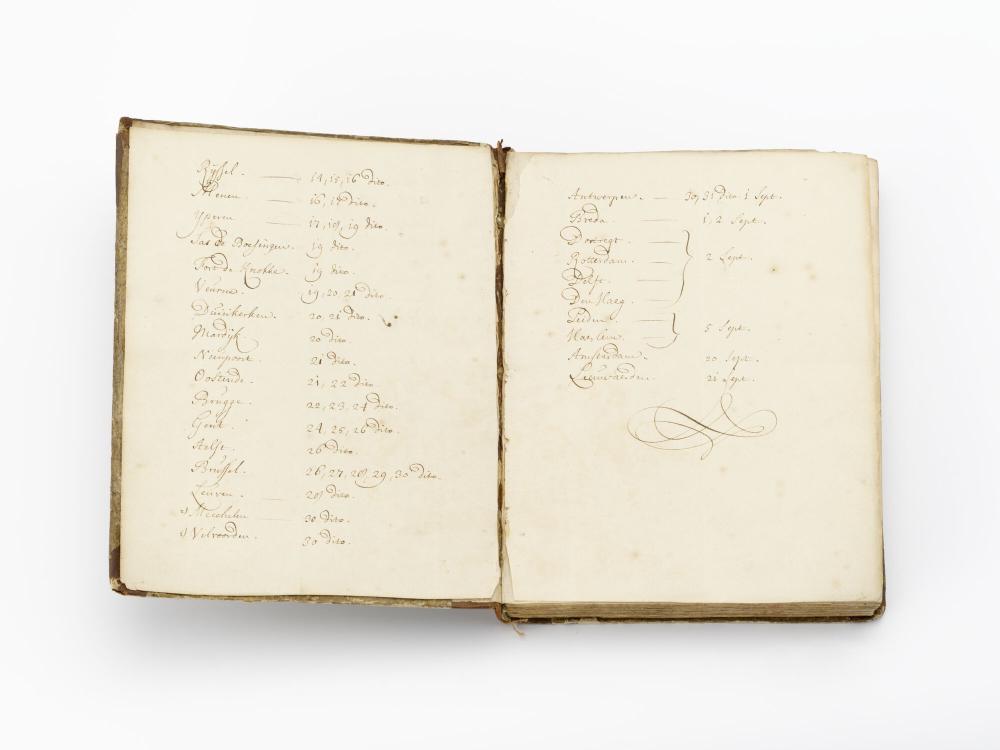 Ryssel. — 14, 15, 16 dito.
Menen — 16, 17 dito.
Yperen — 17, 18, 19 dito.
Sas de Boesingen. 19 dito.
Fort de Knokke. 19 dito.
Veurne. 19, 20, 21 dito.
Duinkerken. 20, 21 dito.
Mardyk 20 dito.
Nieupoort. 21 dito.
Oostende. 21, 22 dito.
Brugge. 22, 23, 24 dito.
Gent. 24, 25, 26 dito.
Aelst. 26 dito.
Brussel. 26, 27, 28, 29, 30 dito.
Leuven. — 28 dito.
2) Mechelen — 30 dito.
1) Vilvoorden. 30 dito.
Antwerpen. — 30, 31 dito 1 Sept.
Breda. — 1, 2 Sept.
Dortregt —
Rotterdam. — 2 Sept.
Delft. —
Den Haeg. —
Leiden —
Haerlem. — 5 Sept.
Amsterdam. 20 Sept.
Leeuwaerden. 21 Sept.